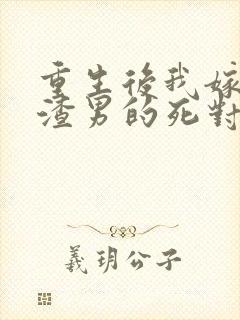 重生後我嫁
渣男的死對
義玥公子